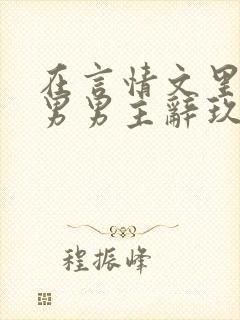 在言情文里
男男主辭玖
程振峰